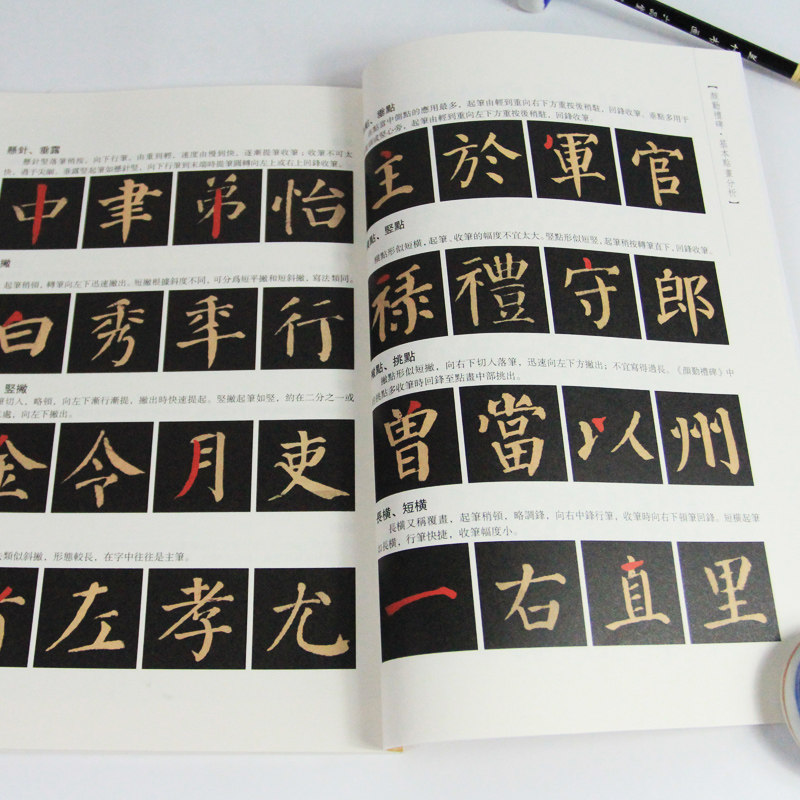 懸針、垂露
懸針竪落筆稍按，向下行筆，由重到輕，速度由慢到快，逐漸提筆收筆；收筆不可太
快，過于尖細。垂露竪起筆如懸針竪，向下行筆到末端時提筆圓轉向左上或右上回鋒收筆。
中 聿 弟 怡
撇
起筆稍頓，轉筆向左下迅速撇出。短撇根據斜度不同，可分爲短平撇和短斜撇，寫法類同。
白 秀 年 行
竪撇
筆切入，略頓，向左下漸行漸提，撇出時快速提起。竪撇起筆如竪，約在二分之一或
處，向左下撇出。
金 令 月 吏
類似斜撇，形態較長，在字中往往是主筆。
左 孝 尤
【顏勤禮碑·基本點畫分析】
、垂點
點當中側點的應用最多，起筆由輕到重向右下方重按後稍駐，回鋒收筆。垂點多用于
竪心旁，起筆由輕到重向左下方重按後稍駐，回鋒收筆。
主 於 軍 官
點、竪點
橫點形似短橫，起筆、收筆的幅度不宜太大。竪點形似短竪，起筆稍按轉筆直下，回鋒收筆。
祿 禮 守 郎
點、挑點
撇點形似短撇，向右下切入落筆，迅速向左下方撇出；不宜寫得過長。《顏勤禮碑》中
挑點多收筆時回鋒至點畫中部挑出。
曾 當 以 州
長橫、短橫
長橫又稱覆畫，起筆稍頓，略調鋒，向右中鋒行筆，收筆時向右下頓筆回鋒。短橫起筆
如長橫，行筆快捷，收筆幅度小。
一 右 直 里